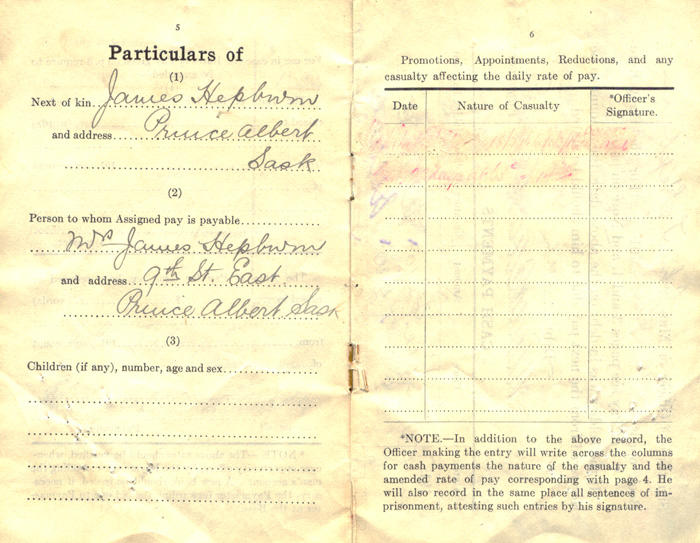 5
Particulars of
(1)
Next of kin James Hepburn
and address Prince Albert
Sask
(2)
Person to whom Assigned pay is payable
Mrs James Hepburn
and address 9th St. East.
Prince Albert Sask
(3)
Children (if any), number, age and sex
6
Promotions, Appointments, Reductions, and any
casualty affecting the daily rate of pay.
Date Nature of Casualty *Officer's
Signature.
CASH PAYMENTS
*NOTE.—In addition to the above record, the
Officer making the entry will write across the columns
for cash payments the nature of the casualty and the
amended rate of pay corresponding with page 4. He
will also record in the same place all sentences of im-
prisonment, attesting such entries by his signature.